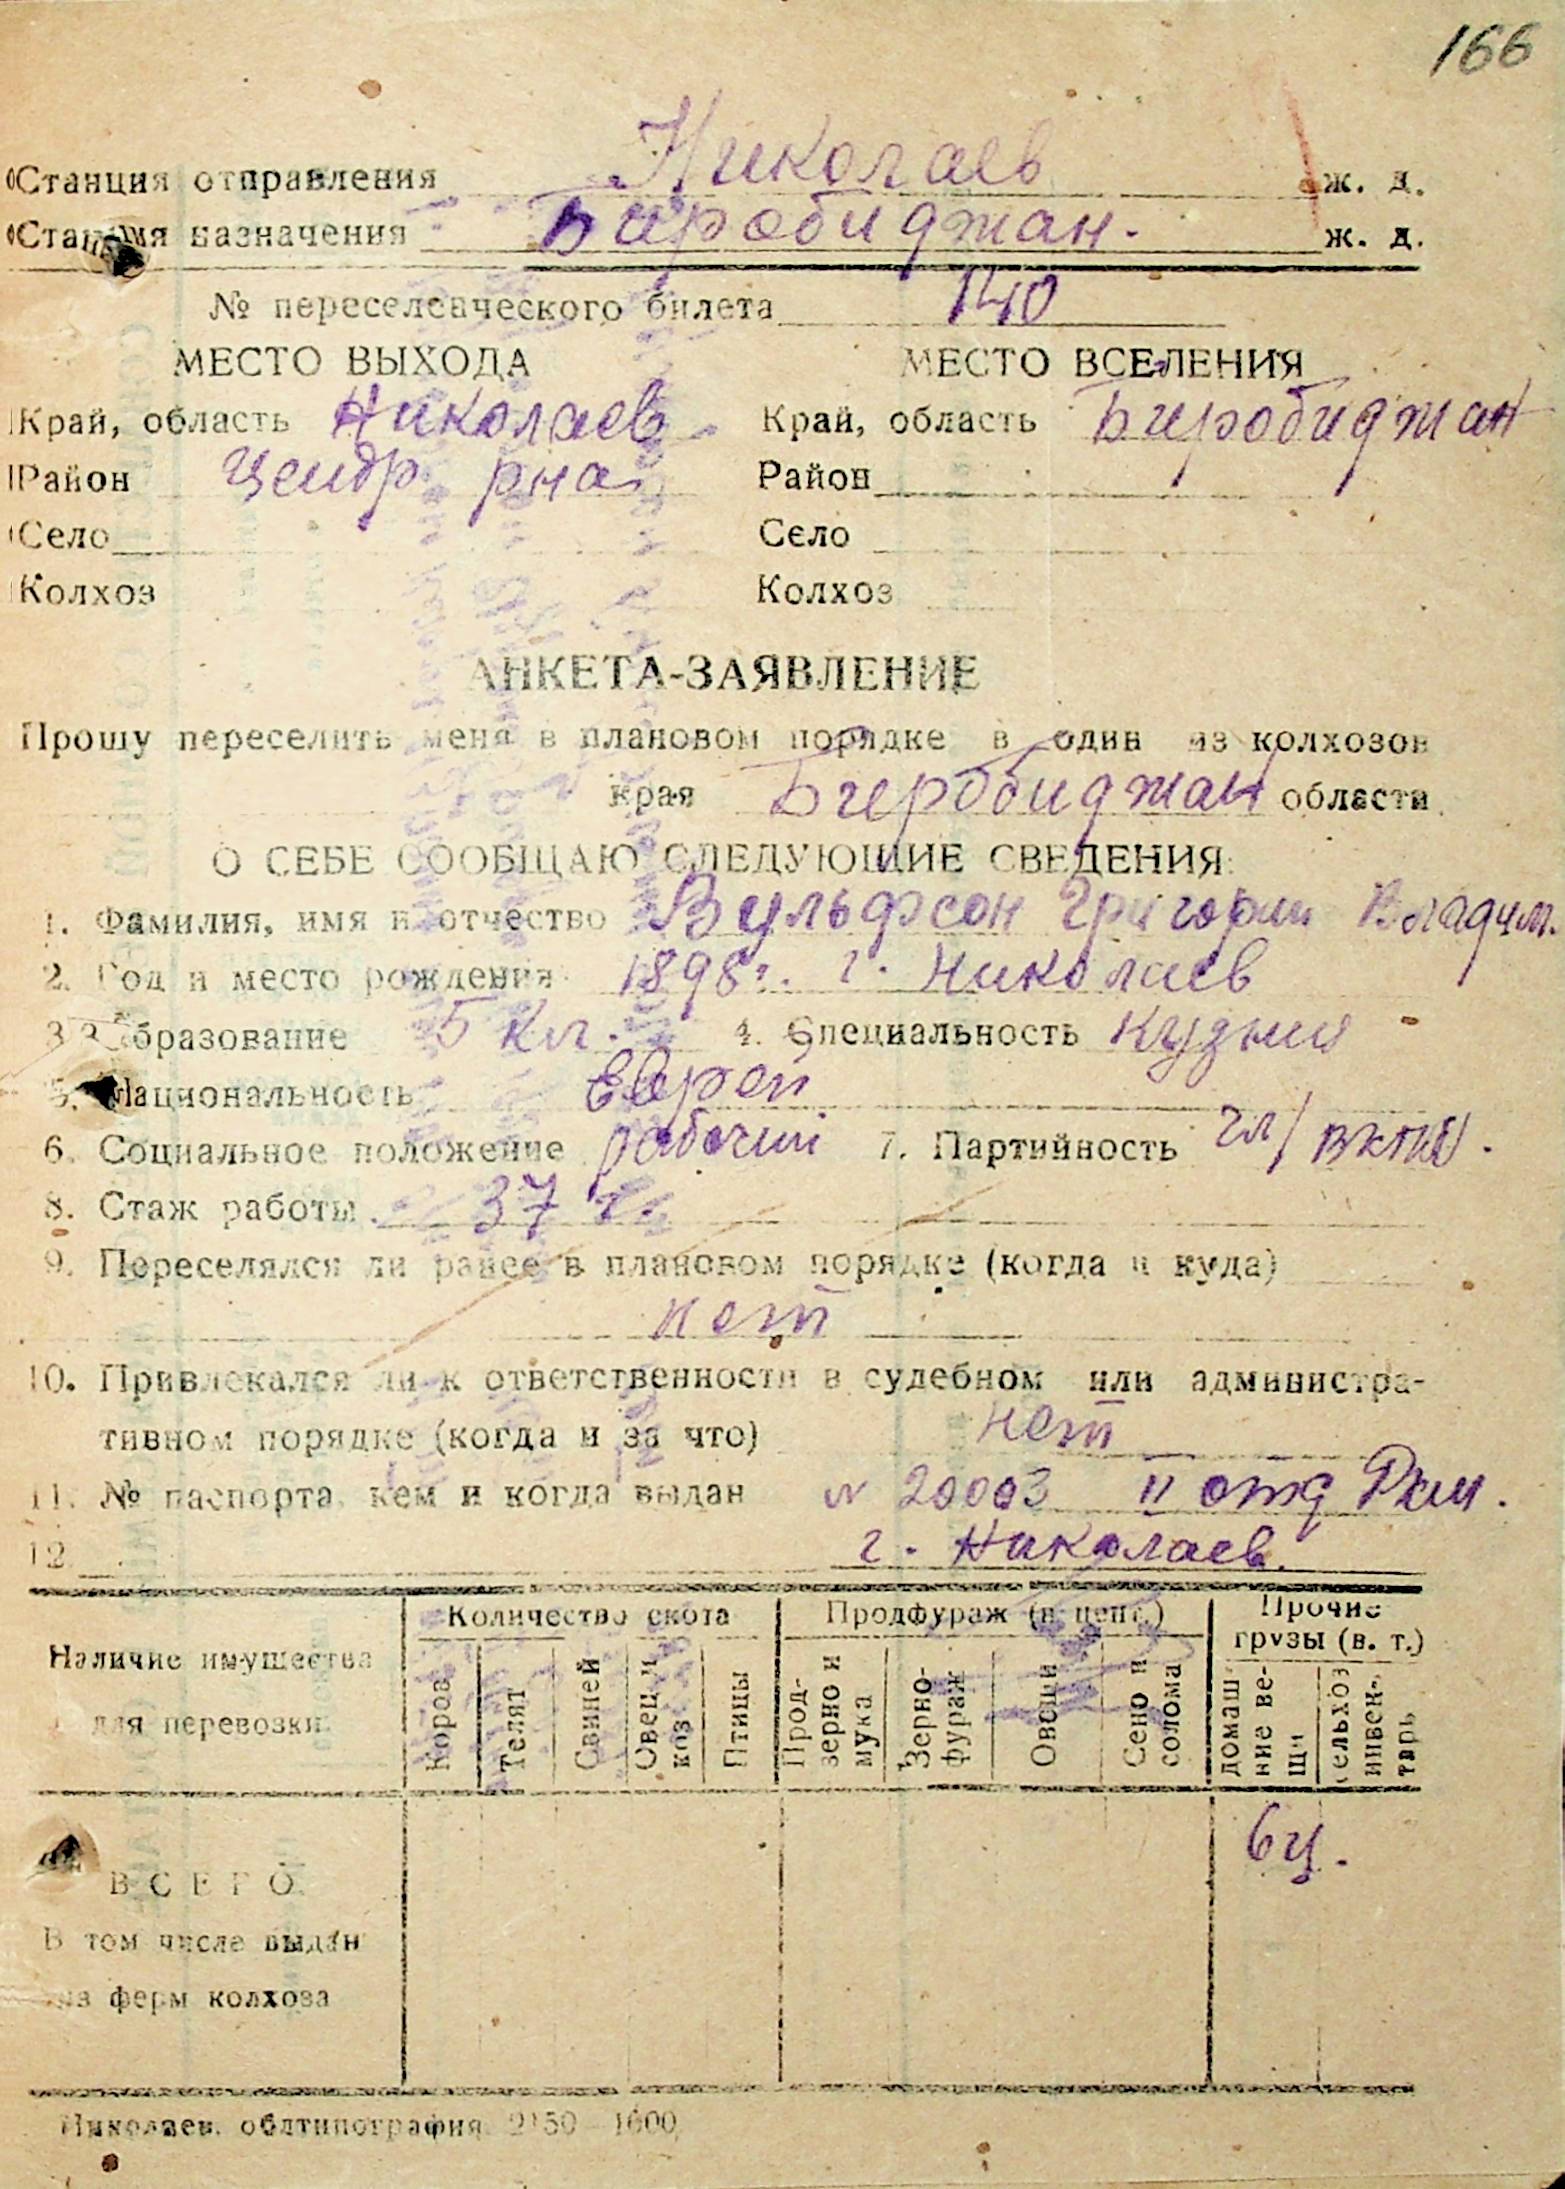 166
Станция отправления Николаев ж. д.
Станция назначения Биробиджан. ж. д.
№ переселенческого билета 140
МЕСТО ВЫХОДА МЕСТО ВСЕЛЕНИЯ
Край, область Николаев Край, область Биробиджан
Район Центр. рна Район
Село Село
Колхоз Колхоз
АНКЕТА-ЗАЯВЛЕНИЕ
Прошу переселить меня в плановом порядке в один из колхозов
края Биробиджан области
О СЕБЕ СООБЩАЮ СЛЕДУЮЩИЕ СВЕДЕНИЯ:
1. Фамилия, имя и отчество Вульфсон Григории Владим.
2. Год и место рождения 1898 г. г. Николаев
3. Образование 5 кл. 4. Специальность
5. Национальность Еврей
6. Социальное положение рабочий 7. Партийность чл/ вкпб.
8. Стаж работы 37 г.
9. Переселялся ли ранее в плановом порядке (когда и куда)
нет
10. Привлекался ли к ответственности в судебном или администра-
тивном порядке (когда и за что) нет
11. № паспорта, кем и когда выдан № 20003 II отд Ркм.
12. г. Николаев.
Наличие имущества для перевозки
Количество скота
Продфураж (в цент.)
Прочие грузы (в. т.)
Коров
Телят
Свиней
Овец и коз
Птицы
Прод-зерно и мука
Зерно-фураж
Овощи
Сено и солома
домаш-ние ве-щи
сельхоз инвен-тарь
ВСЕГО 6ц.
В том числе выдан
из ферм колхоза
Николаев, облтипография 2150—1600